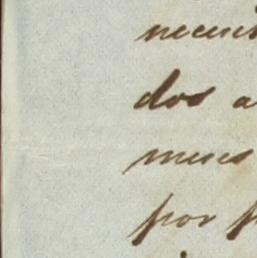 necesi
dos a
meses
por p